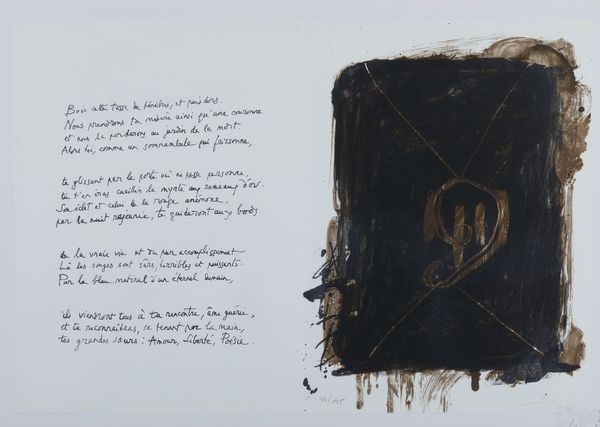 Bois cette tasse de ténèbres, et puis dors.
Nous prendrons ta misère ainsi qu'une couronne
et nous la porterons au jardin de la mort.
Alors toi, comme un somnambule qui frissonne,
te glissant par la porte où ne passe personne,
tu t'en iras cueillir le myrte aux rameaux d'or.
Son éclat et celui de la rouge anémone,
par la nuit rajeunie, te guideront aux bords
de la vraie vie et du pur accomplissement.
Là les songes sont sûrs, terribles et puissants.
Par le bleu matinal d'un éternel demain,
ils viendront tous à ta rencontre, âme guérie,
et tu reconnaîtras, se tenant par la main,
tes grandes sœurs : Amour, Liberté, Poésie.